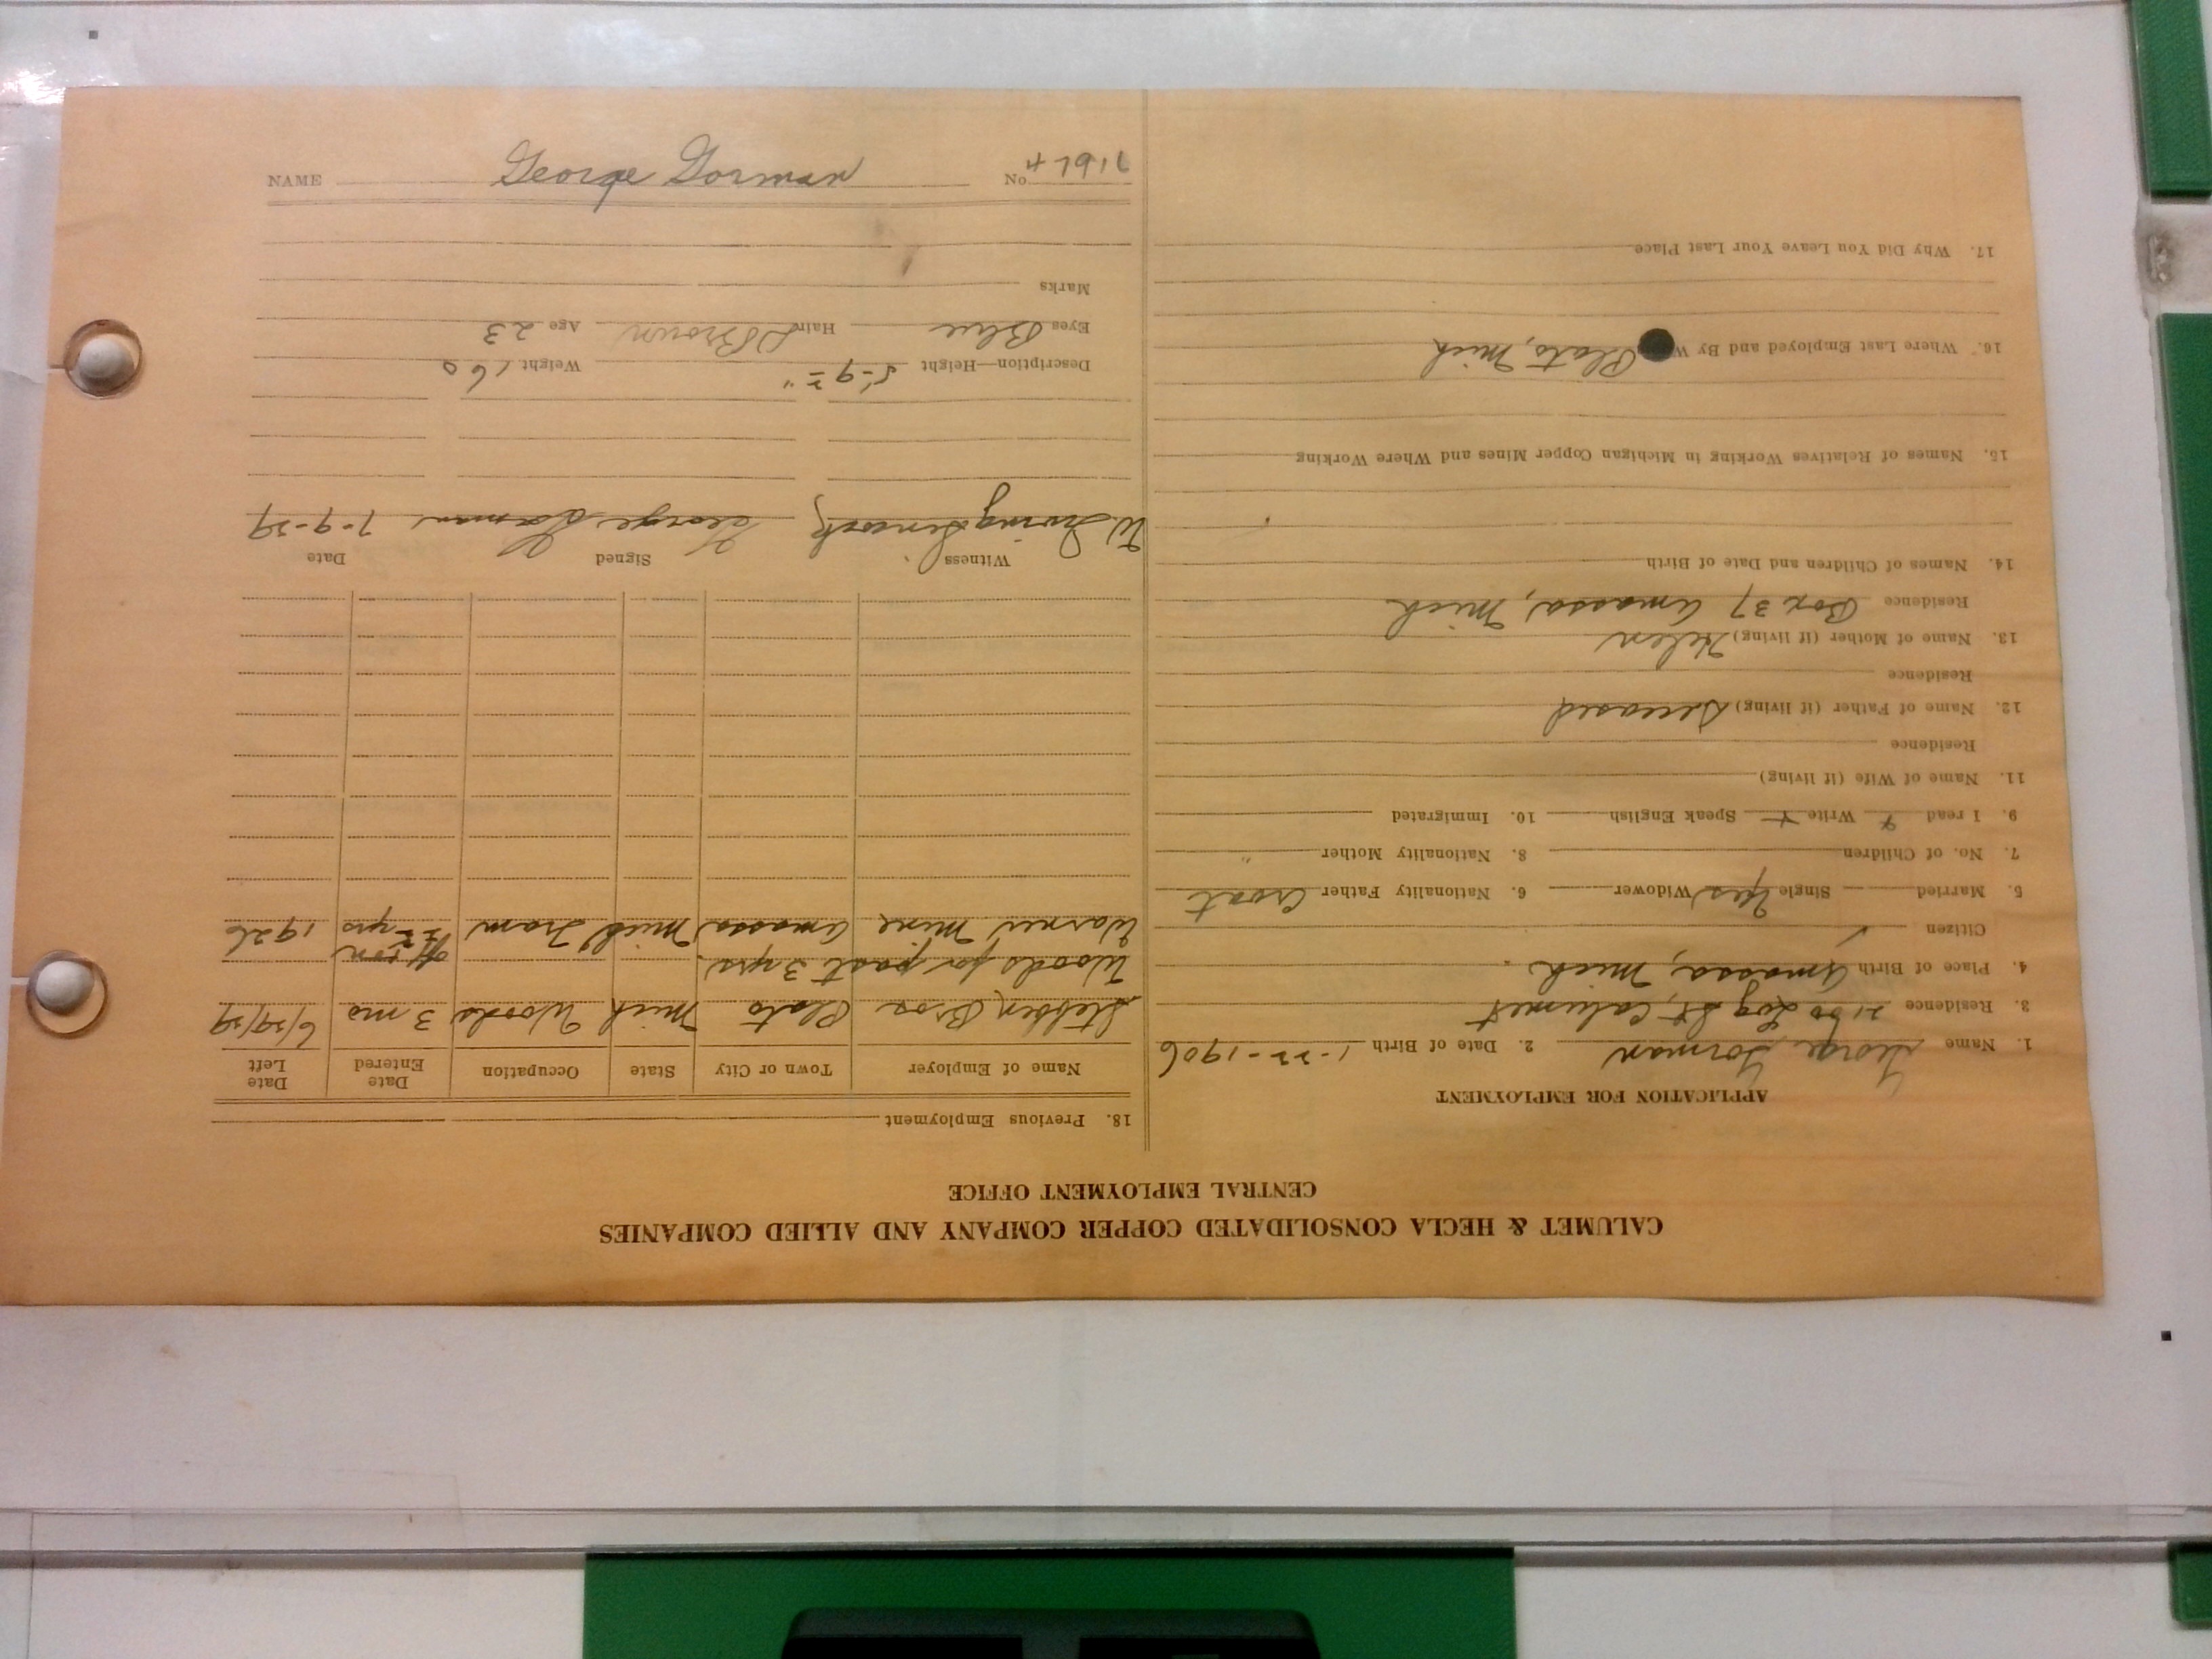 CALUMET & HECLA CONSOLIDATED COPPER COMPANY AND ALLIED COMPANIES
CENTRAL EMPLOYMENT OFFICE
APPLICATION FOR EMPLOYMENT
1. Name George Gorman 2. Date of Birth 1-22-1906
3. Residence Log St, Calumet
4. Place of Birth Amassa, Mich.
Citizen ✓
5. Married Single Yes Widower 6. Nationality Father Croat
7. No. of Children 8. Nationality Mother "
9. I read + Write + Speak English 10. Immigrated
11. Name of Wife (if living)
Residence
12. Name of Father (if living) Deceased
Residence
13. Name of Mother (if living) Helen
Residence Box 37 Amassa, Mich
14. Names of Children and Date of Birth
15. Names of Relatives Working in Michigan Copper Mines and Where Working
16. Where Last Employed and By W Plato, Mich
17. Why Did You Leave Your Last Place
18. Previous Employment
Name of Employer Town or City State Occupation Date Entered Date Left
Stebben Bros Plato Mich Woods 3 mo 6/29/29
Woods for past 3 yrs. off & on
Warner Mine Amassa Mich Tram yrs 1926
Witness Signed Date
W. Irving George Gorman 7-9-29
Description—Height 5'-9 Weight 160
Eyes Blue Hair D Brown Age 23
Marks
NAME George Gorman No.